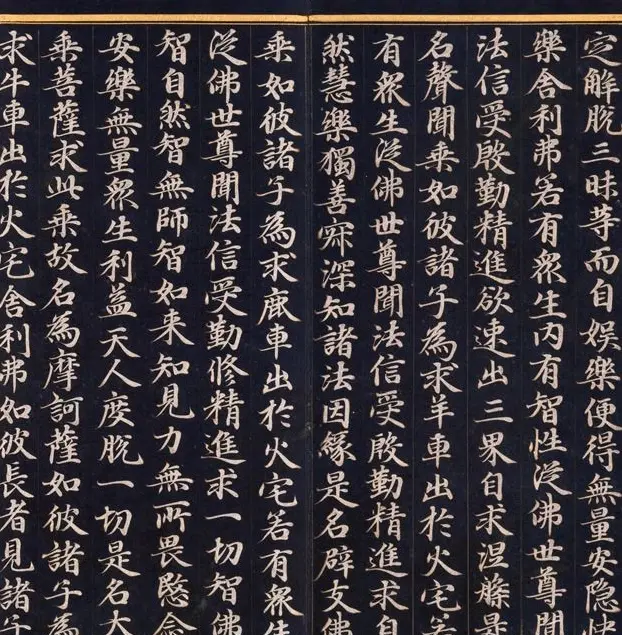 定解脱三昧等而自娛樂便得無量安隱快
樂舍利弗若有衆生内有智性從佛世尊聞
法信受殷勤精進欲速出三界自求涅槃是
名聲聞乘如彼諸子為求羊車出於火宅若
有衆生從佛世尊聞法信受殷勤精進求自
然慧樂獨善寂深知諸法因緣是名辟支佛
乘如彼諸子為求鹿車出於火宅若有衆生
從佛世尊聞法信受勤修精進求一切智佛
智自然智無師智如来知見力無所畏愍念
安樂無量衆生利益天人度脱一切是名大
乘菩薩求此乘故名為摩訶薩如彼諸子為
求牛車出於火宅舍利弗如彼長者見諸子